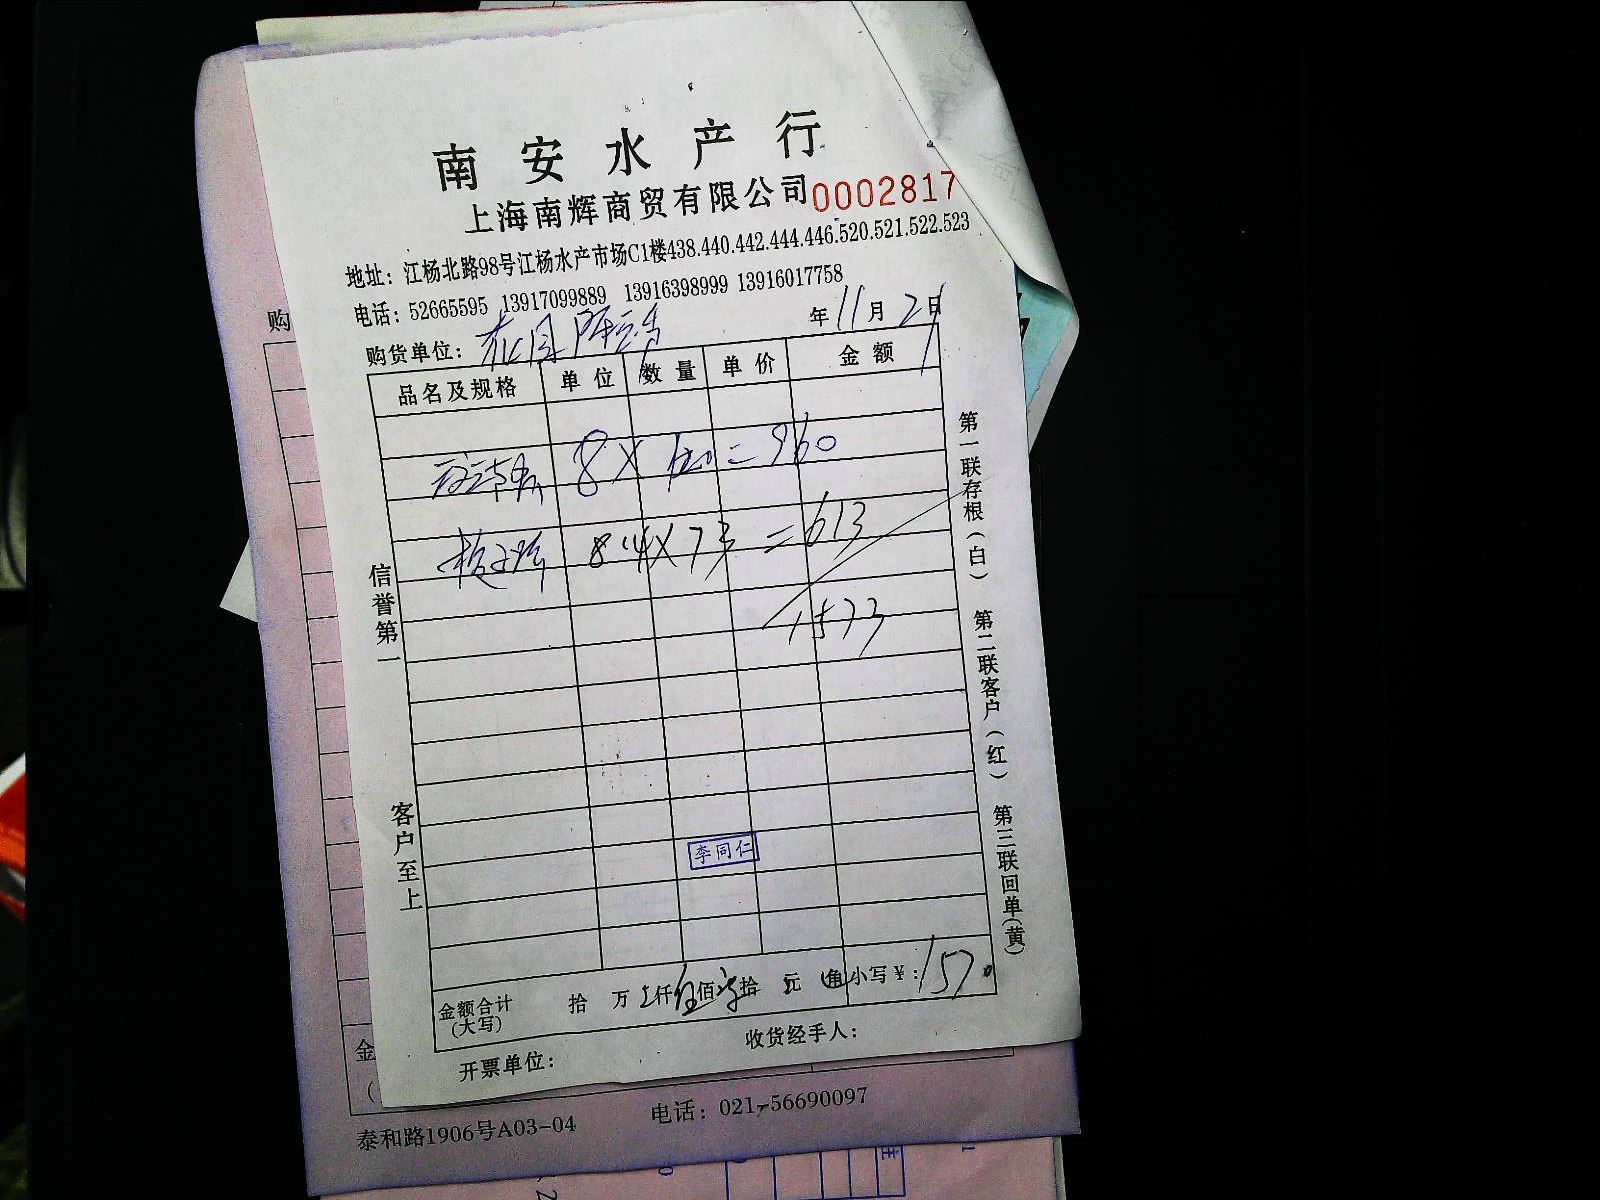 南安水产行
上海南辉商贸有限公司 0002817
地址：江杨北路98号江杨水产市场C1楼438.440.442.444.446.520.521.522.523
电话：52665595 13917099889 13916398999 13916017758
购货单位：
年11月2日
品名及规格 单位 数量 单价 金额
8X120=960
8.4X73=613
1573
李同仁
金额合计（大写） 拾 万 仟伍佰拾 元 角 小写￥：1570
开票单位：
收货经手人：
信誉第一
客户至上
第一联存根（白） 第二联客户（红） 第三联回单（黄）
购
金
（
泰和路1906号A03-04 电话：021-56690097